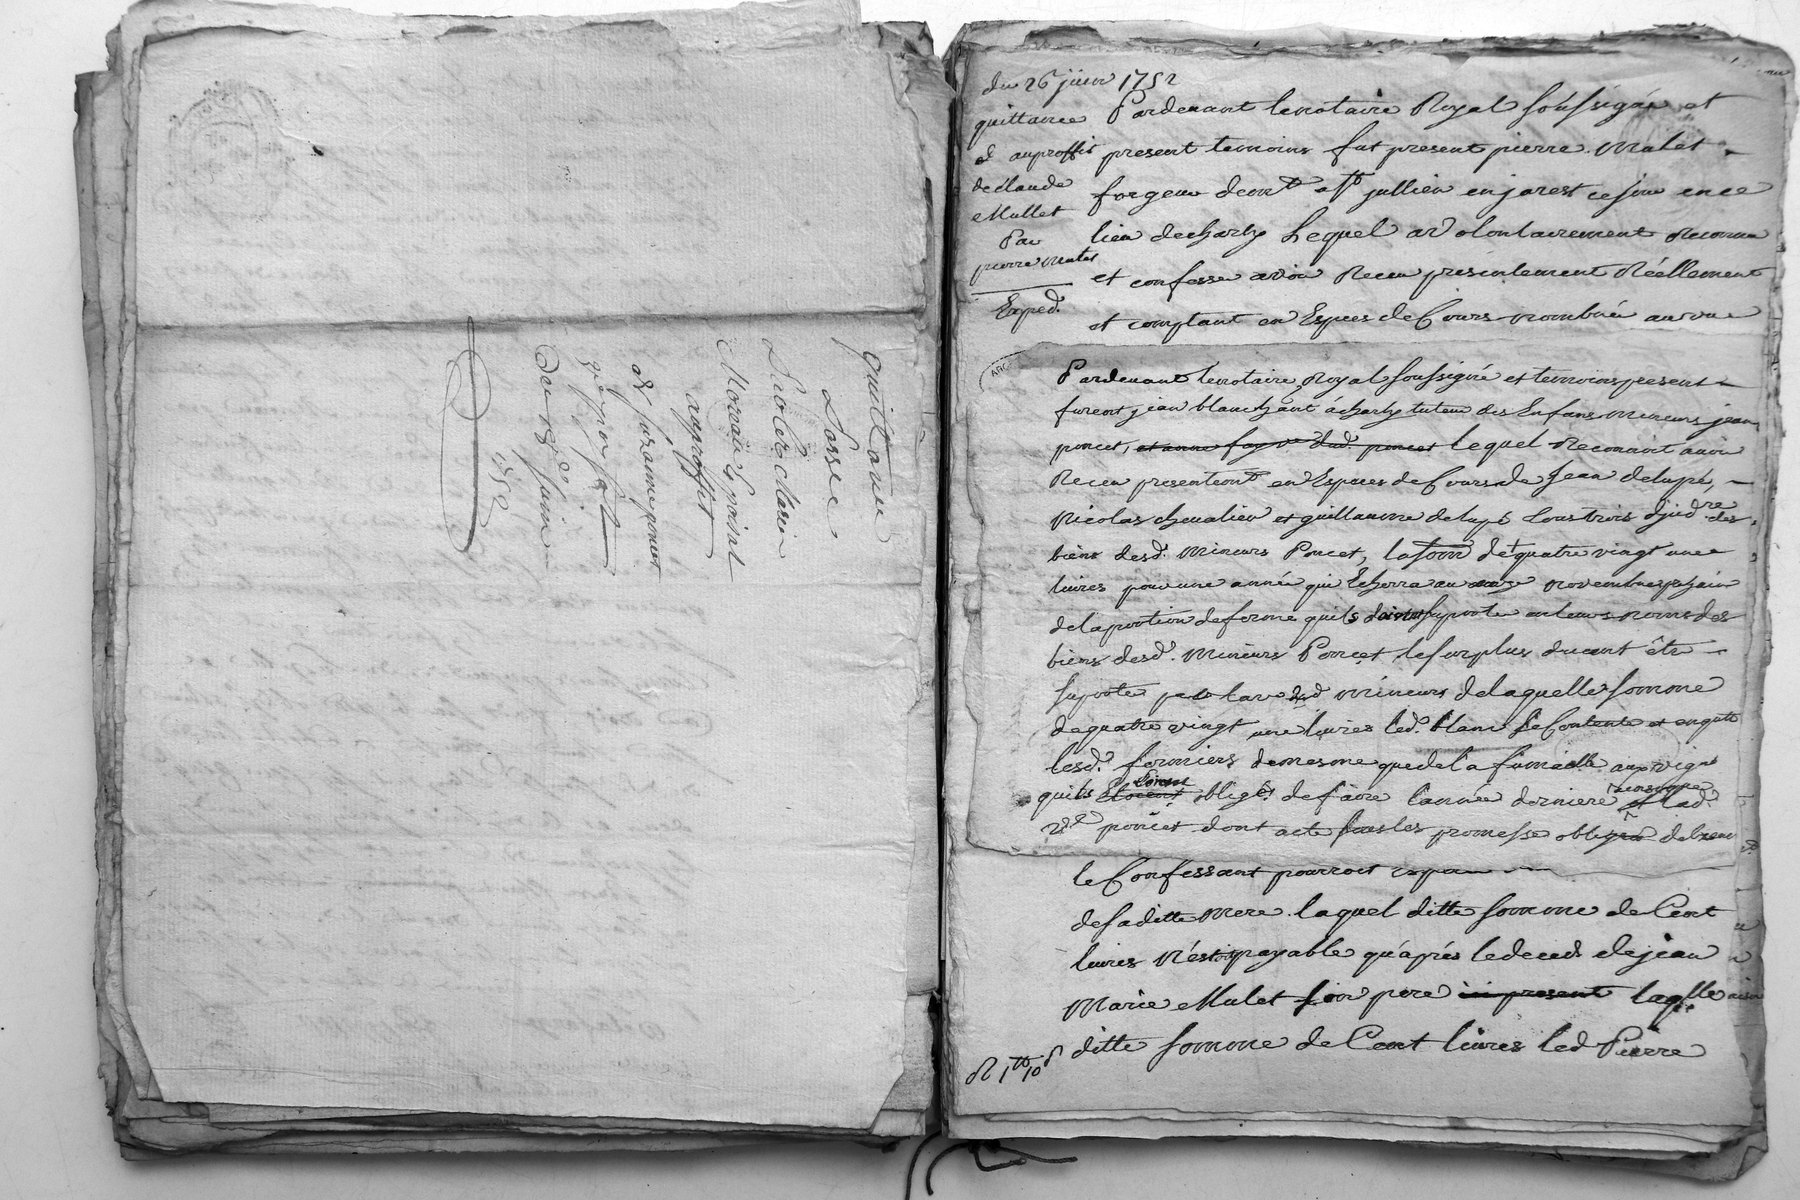 quittance
Lorsse
Moreau Epoisat
auproffit
de suzanne poncet
Du 18 juin
1752
du 26 juin 1752
quittance
auproffit
de Claude
Mullet
Par
pierre mulet
Exped.
Pardevant le notaire Royal soussigné et
present temoins fut present pierre Mulet
forgeur demt. a st jullien en jarest ce jour en ce
lieu de charly Lequel a volontairement Reconnu
et confesse avoir Receu presentement Réellement
et comptant en Espees de Cours nombrée au vue
ARC
Pardevant le notaire Royal soussigné et temoins present
furent jean blanchant á charly tuteur des Enfans mineurs jean
poncet, et anne fay ve. dud. poncet lequel Reconnoit avoir
Receu presentemt. en Espees de Cours de Jean delupé,
Nicolas chevalier et guillaume delupé tous trois adjudre. des
biens desd. mineurs Poncet, la somme de quatre vingt une
livres pour une année qui Echerra au onze novembre prochain
de la portion de ferme quils doivent suporte en leurs noms des
biens desd. Mineurs Poncet le surplus devant être
suporte par la ve. desd mineurs de laquelle somme
de quatre vingt une livres led. blanc se Contente et en quitte
lesd. fermiers de mesme que de la fumaille aux vignes
quils Etoient soient obligés. de faire l'année derniere
ve poncet dont acte sous les promesse obligon
le Confessant pourroit
de saditte mere. laquel ditte somme de Cent
livres n'estoit payable qu'aprés le deceds de jean
Marie Mulet son pere ici present laqlle
ditte somme de Cent livres led Pierre
R 1tt 10s